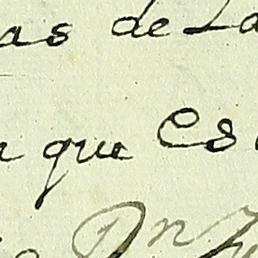 as de La
que Es
Dn